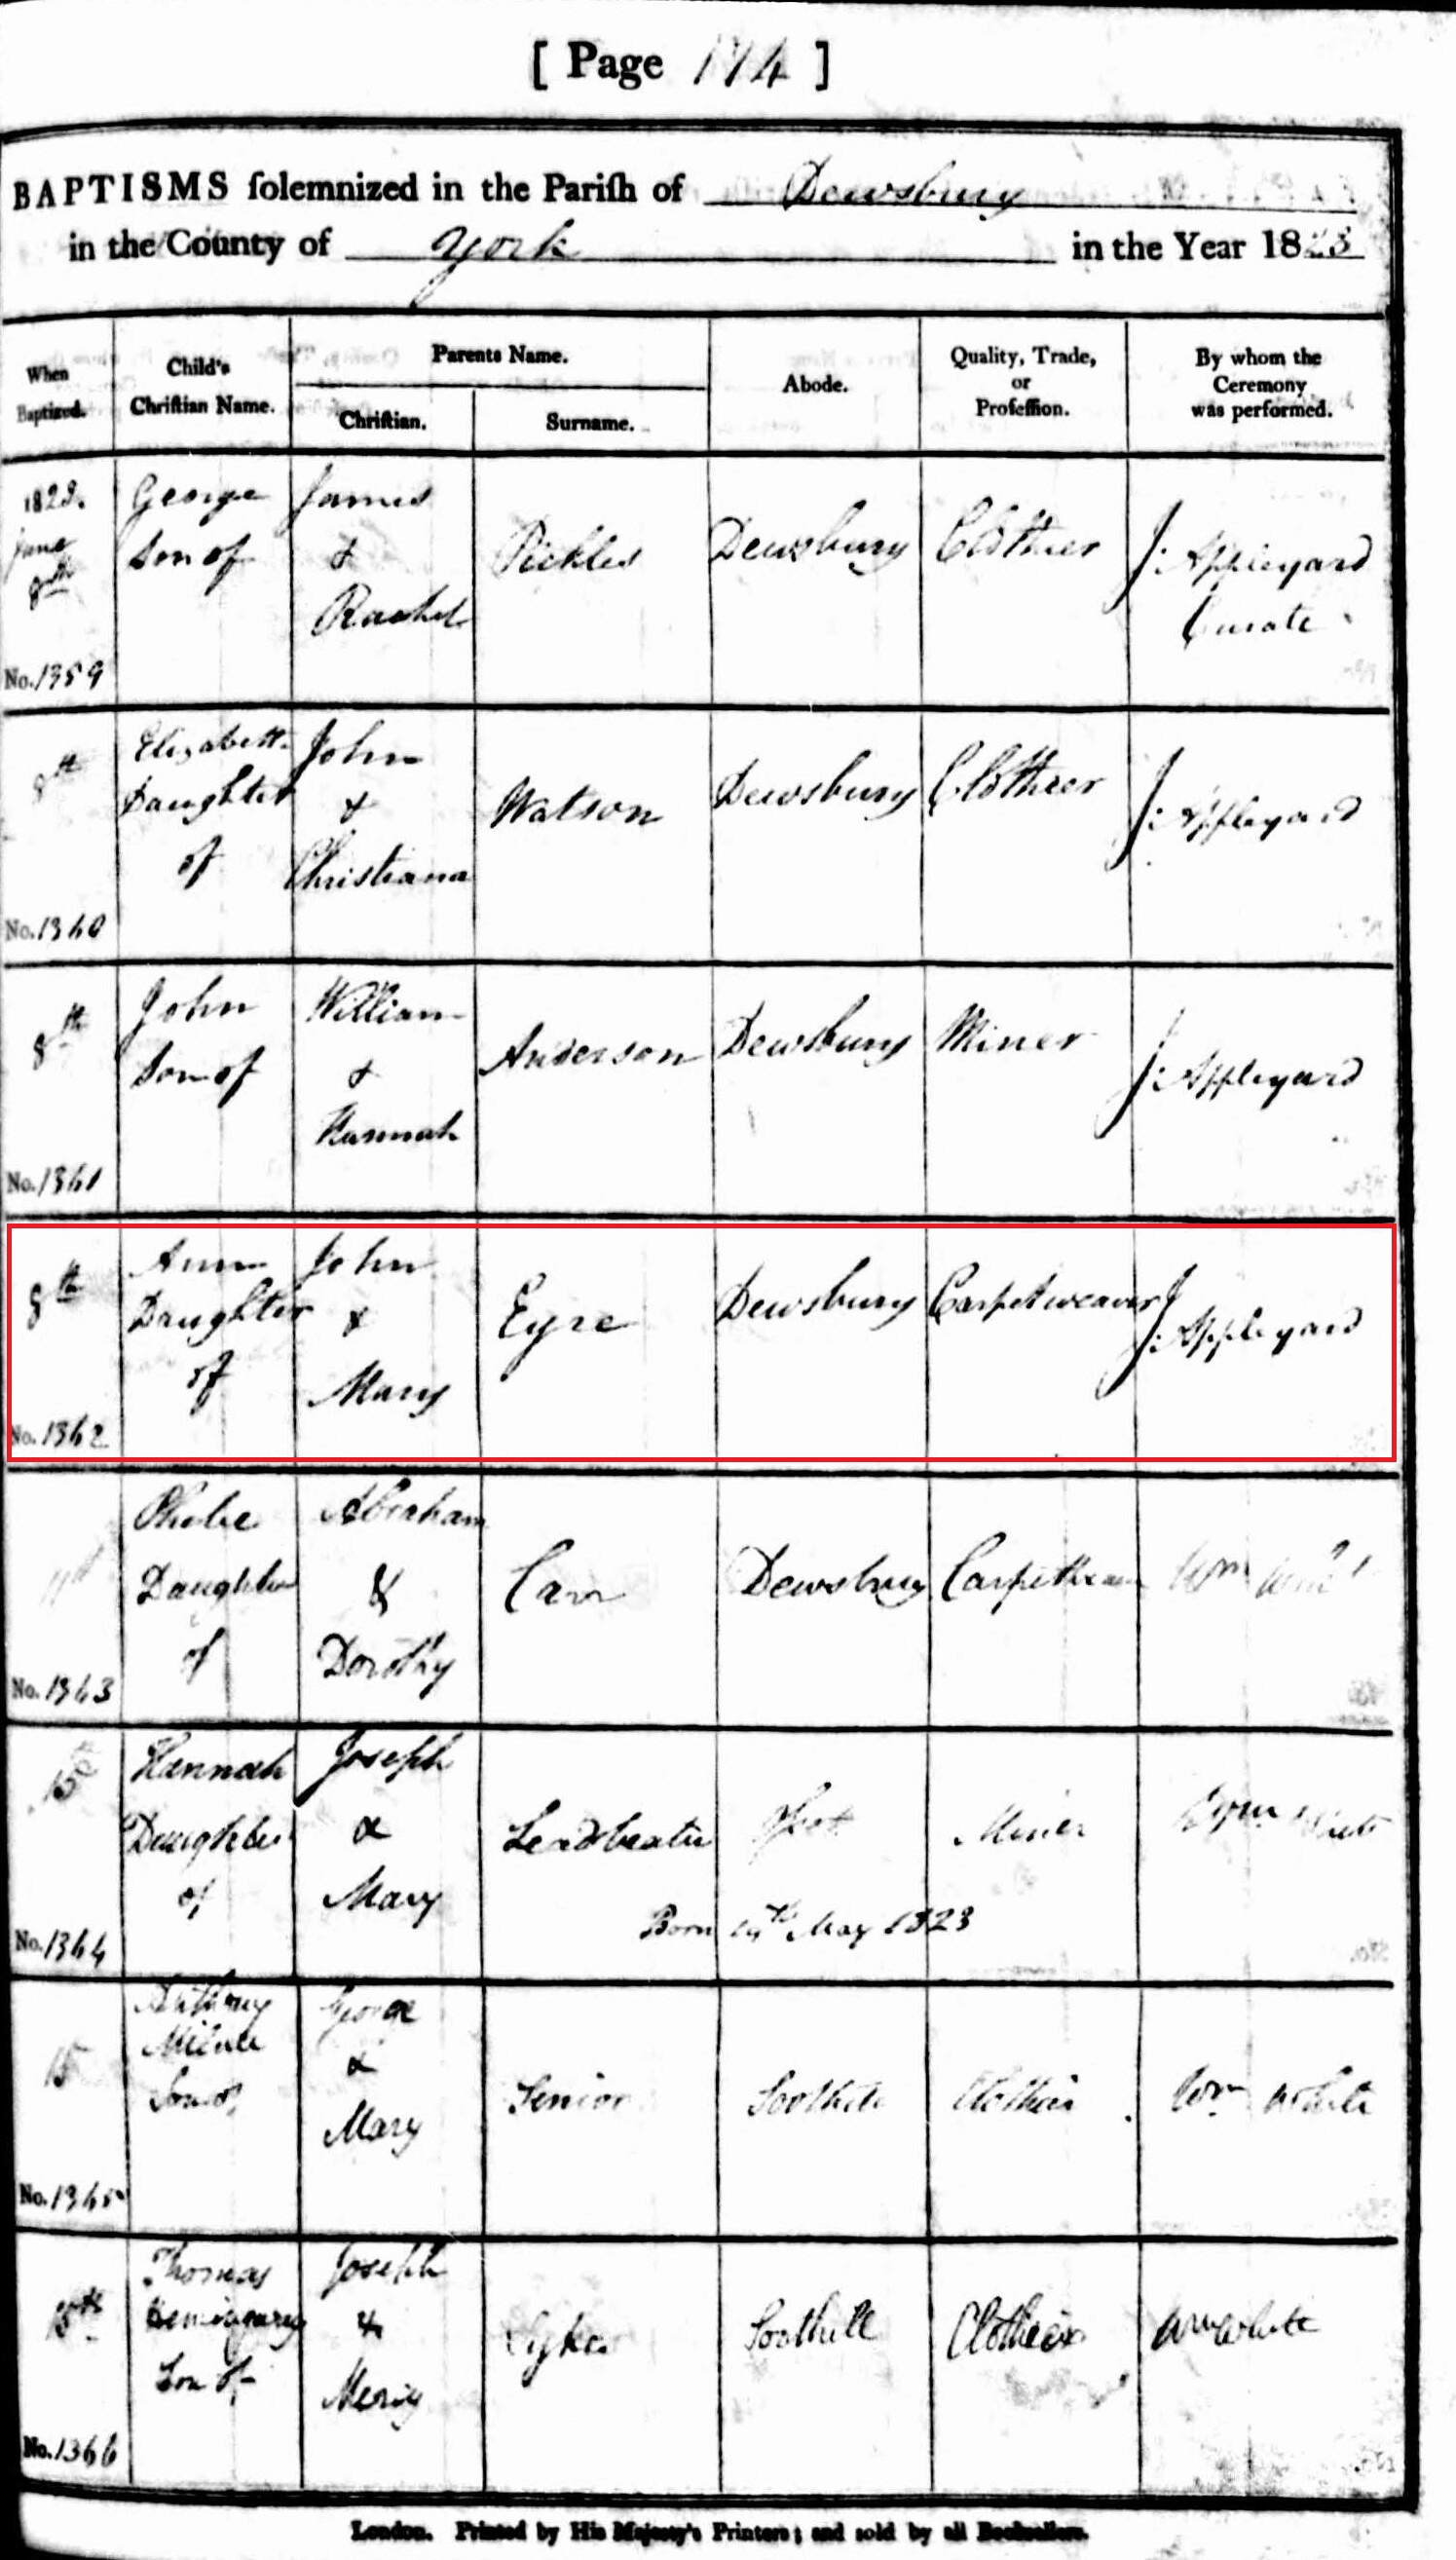 [ Page 174 ]
BAPTISMS ſolemnized in the Pariſh of Dewsbury
in the County of York in the Year 1823
When Baptized.
Child's Chriſtian Name.
Parents Name.
Chriſtian.
Surname.
Abode.
Quality, Trade, or Profeſſion.
By whom the Ceremony was performed.
1823. June 8th No. 1359 George Son of James & Rachel Pickles Dewsbury Clothier J: Appleyard Curate
8th No. 1360 Elizabeth Daughter of John & Christiana Watson Dewsbury Clothier J: Appleyard
8th No. 1361 John Son of William & Hannah Anderson Dewsbury Miner J: Appleyard
8th No. 1362 Ann Daughter of John & Mary Eyre Dewsbury Carpetweaver J: Appleyard
No. 1363 Phebe Daughter of Abraham & Dorothy Carr Dewsbury Wm
No. 1364 Hannah Daughter of Joseph & Mary Leadbeater Miner Wm White
Born May 1823
15 No. 1365 Anthony Son of George & Mary Senior Soothill Clothier Wm White
15th No. 1366 Thomas Hemingway Son of Joseph & Mercy Sykes Soothill Clothier Wm White
London. Printed by His Majesty's Printers; and sold by all Booksellers.